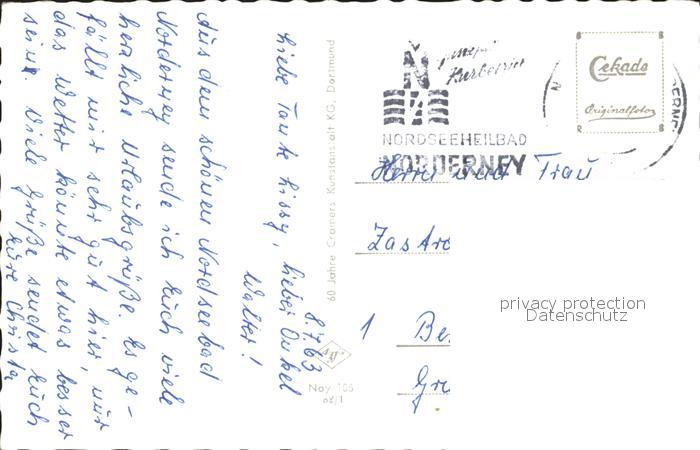 8.7.63
Liebe Tante Lissy, lieber Onkel
Walter!
Aus dem schönen Nordseebad
Norderney sende ich Euch viele
herzliche Urlaubsgrüße. Es ge-
fällt mir sehr gut hier, nur
das Wetter könnte etwas besser
sein. Viele Grüße sendet Euch
Eure Christa
60 Jahre Cramers Kunstanstalt KG, Dortmund
Noy 105
62/1
Kurbetrieb
NORDSEEHEILBAD
NORDERNEY
Cekade
Originalfoto
Herrn und Frau
Zastro
1 Be
Gr
privacy protection
Datenschutz